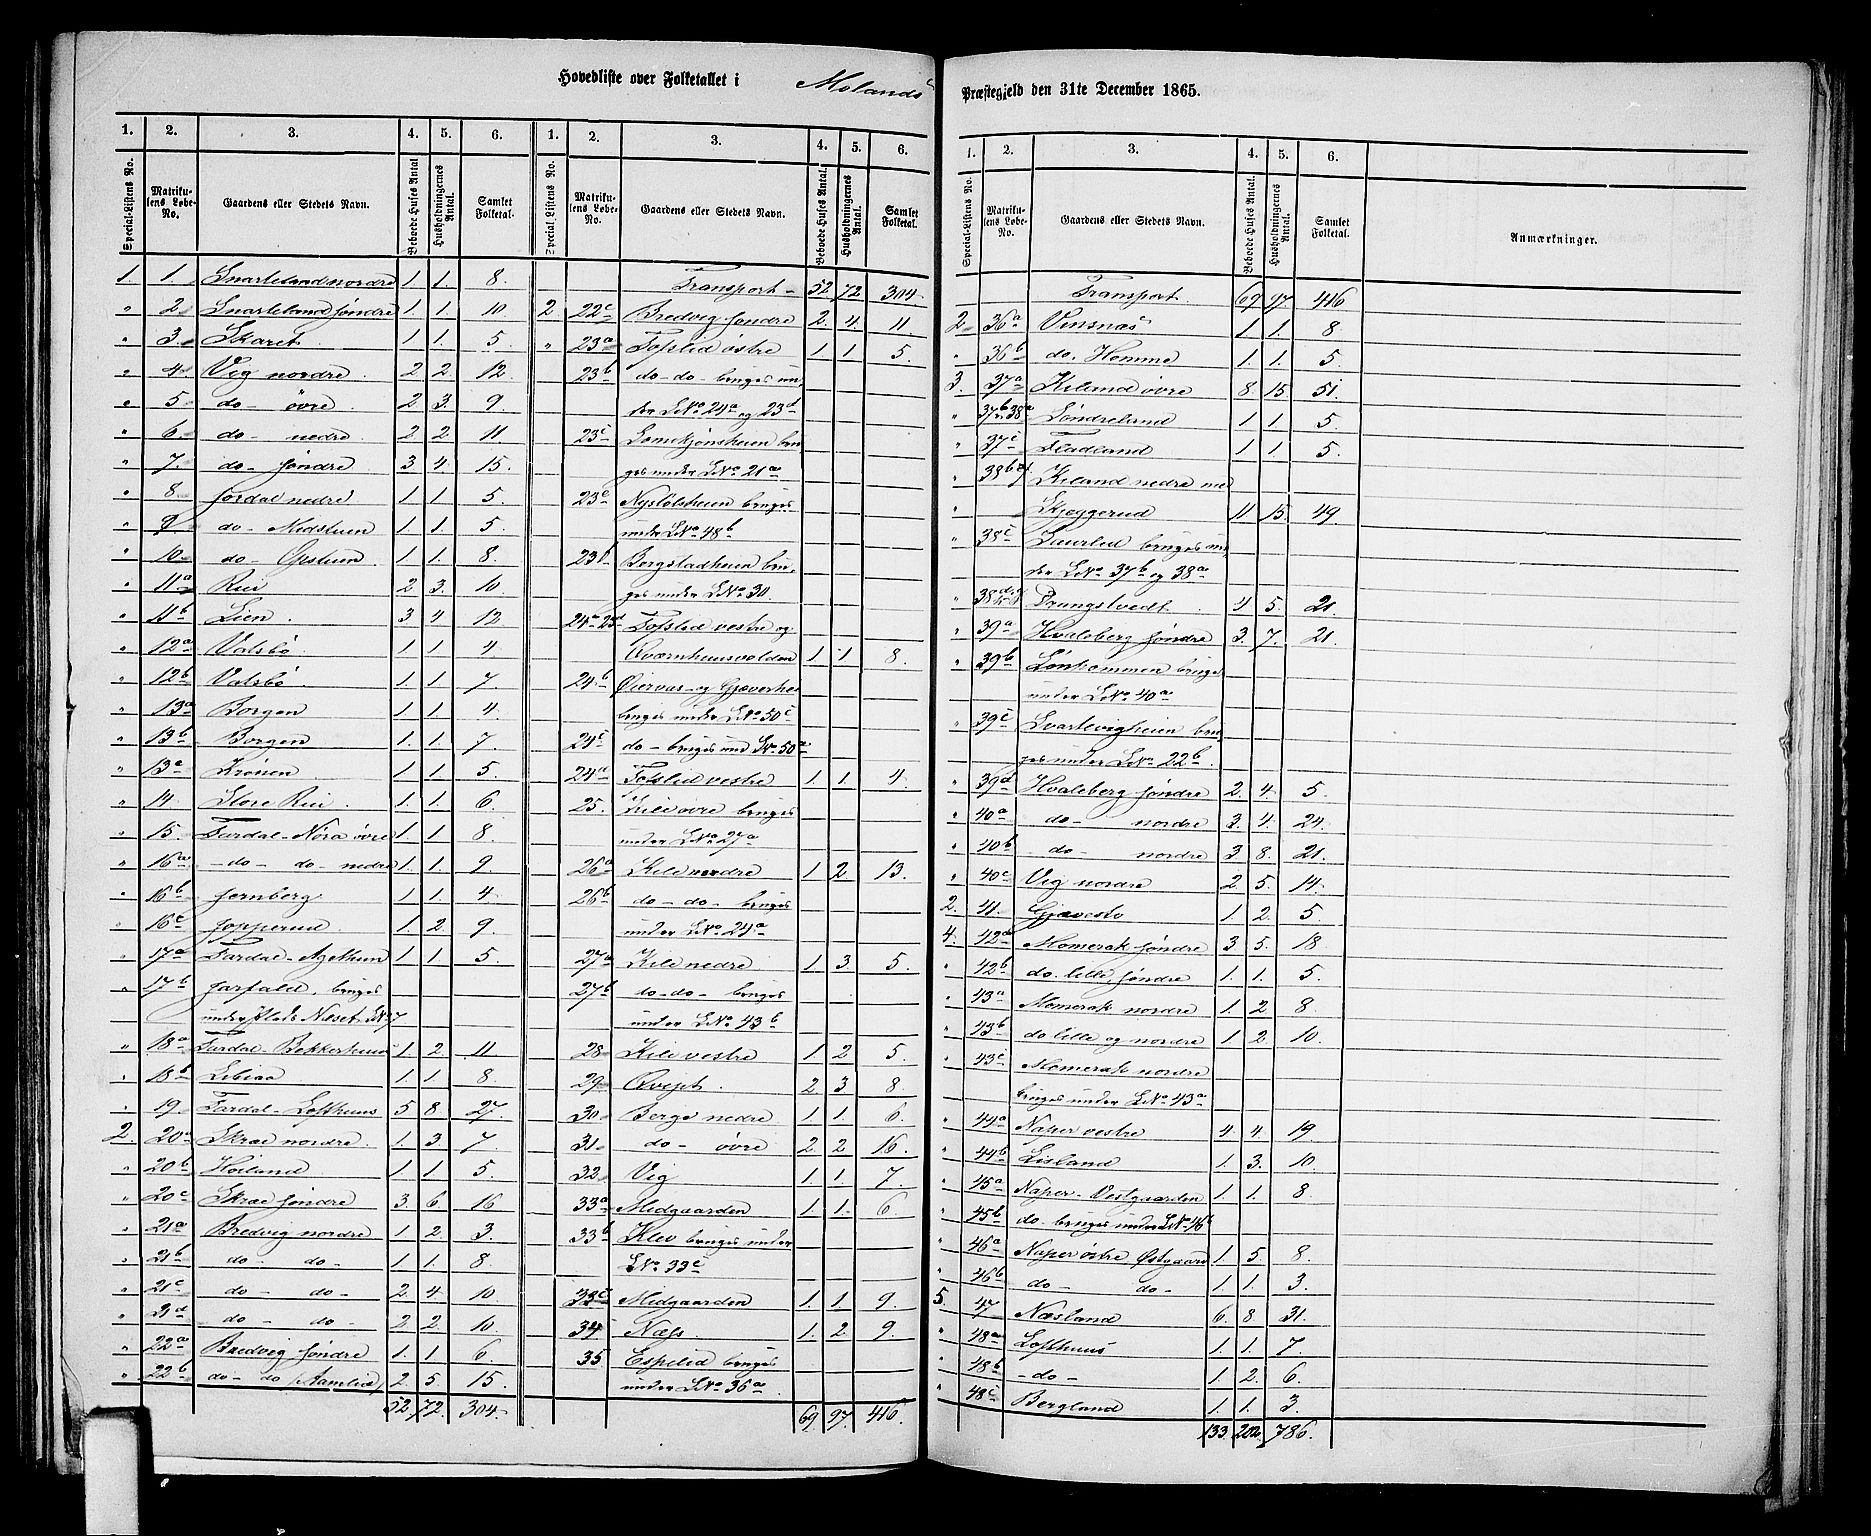 Hovedliste over Folketallet i Molands Præstegjeld den 31te December 1865.
1. 2. 3. 4. 5. 6.
Special-Listens No. Matrikulens Løbe-No. Gaardens eller Stedets Navn. Beboede Huses Antal Husholdningernes Antal. Samlet Folketal.
1. 1. Snarteland nordre 1. 1. 8.
" 2 Snarteland søndre 1. 1. 10.
" 3. Skaret 1 1. 5.
" 4. Vig nordre 2 2. 12.
" 5 do- övre 2. 3. 9.
" 6. do- nedre 2 2. 11.
" 7. do- søndre 3. 4. 15.
" 8 Jordal nedre 1 1. 5.
" 9 do- Midstuen 1. 1. 5.
" 10. do- Opstuen 1. 1. 8.
" 11a Rui 2 3. 10.
" 11b Lien 3 4 12.
" 12a Valsbö 1 1 4.
" 12b Valsbö 1 1. 7.
" 13a Borgen 1. 1. 4.
" 13b Borgen 1. 1. 7.
" 13a Krönen 1 1 5.
" 14. Store Rui 1. 1. 6.
" 15. Tardal-Nöra övre 1. 1 8.
" 16a -do-do-nedre 1. 1. 9.
" 16b Jernberg 1 1 4.
" 16c Jopperud 1. 2 9.
" 17a Tardal-Agethun 1 1 5.
" 17b Jarfald, bruges
under Plads Næset LNo 7
" 18a Tardal-Bekkerhuus 1. 2. 11.
" 18b Libiaa 1. 1. 8.
" 19. Tardal-Lofthuus 5 8. 27.
2. 20a Skræ nordre 1. 3. 7
" 20b Höiland 1. 1 5.
" 20c Skræ søndre 3. 6. 16
" 21a Bredvig nordre 1 2 3.
" 21b do- do- 1. 1. 8.
" 21c do- do- 2. 4. 10
" 21d do- do- 2 2. 10.
" 22a Bredvig søndre 1. 1 6.
" 22b do-do (Aamlid) 2 5 15.
52 72. 304.
1. 2. 3. 4. 5. 6.
Special-Listens No. Matrikulens Løbe-No. Gaardens eller Stedets Navn. Beboede Huses Antal. Husholdningernes Antal. Samlet Folketal.
Transport- 52 72 304.
2 22c Bredvig søndre 2. 4. 11.
" 23a Tofslid östre 1 1 5.
23b do-do- bruges un-
der LNo 24a og 23d
23c Lomtjönsheien bru-
ges under LNo 21a
23e Nystölsheien bruges
under LNo 48b
23f Bergstadheien bru-
ges under LNo 30.
24a 23d Tofslid vestre og
Qværnhuusvolden 1 1 8.
24b Øiervas- og Gjæverhei
bruges under LNo 50c
24c do- bruges und LNo 50a
24d Tofslid vestre 1. 1 4.
25. Kile övre bruges
under LNo 27a
26a Kile nordre 1 2 13.
26b do-do- bruges
under LNo 24a
27a Kile nedre 1 3. 5.
27b do-do- bruges
under LNo 43b
28 Kile vestre 1. 2 5.
29 Qvipt. 2. 3 8.
30 Berge nedre 1. 1. 6.
31. do- övre 2. 2 16.
32 Vig 1. 1. 7.
33a Midgaarden 1. 1. 6.
33b Klev bruges under
LNo 33c
33c Midgaarden 1. 1. 9.
34 Næss. 1. 2. 9.
35 Espelid bruges
under LNo 36a
69. 97. 416.
1. 2. 3. 4. 5. 6.
Special-Listens No. Matrikulens Løbe-No. Gaardens eller Stedets Navn. Beboede Huses Antal. Husholdningernes Antal. Samlet Folketal. Anmærkninger.
Transport 69 97. 416
2 36a Vinsnæs 1 1. 8
" 36b do. Homme 1. 1. 5
3. 37a Kiland övre 8. 15. 51.
" 37b, 38a Søndreland 1 1. 5
" 37c Fladland 1 1. 5.
38b Kiland nedre med
Skjeggerud 11. 15. 49
" 38c Laurlid bruges un-
der LNo 37b og 38a
" 38d Drungstvedt 4 5. 21.
" 39a Hvaleberg søndre 3. 7. 21.
" 39b Lönhommen bruges
under LNo 40a
" 39c Svartevigheien bru-
ges under LNo 22b
" 39d Hvaleberg søndre 2. 4. 5.
" 40a do- nordre 3. 4. 24.
" 40b do- nordre 3 8. 21.
" 40c Vig nordre 2. 5. 14.
2. 41. Gjævestö 1. 2. 5.
4. 42a Momerak søndre 3. 5. 18
" 42b do. lille søndre 1. 1. 5
" 43a Momerak nordre 1. 2 8.
" 43b do lille og nordre 1. 2 10.
" 43c Momerak nordre
bruges under LNo 43a
" 44a Naper vestre 4. 4. 19
" 44b Lisland 1. 3. 10.
" 45a Naper-Vestgaarden 1. 1. 8
" 45b do- bruges under LNo 46b
" 46a Naper östre, Østgaard 1. 5 8
" 46b do- do- 1. 1. 3
5. 47 Næsland 6. 8. 31.
" 48a Lofthuus 1. 1. 7.
" 48b -do- 1. 2. 6.
" 48c Bergland 1. 1. 3.
133. 202. 786.